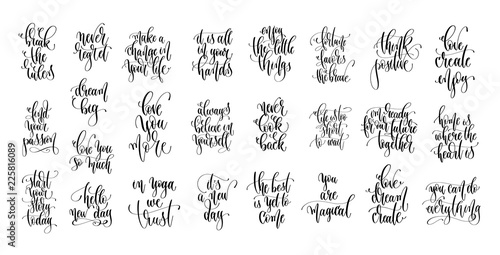 break
the
rules
never
regret
make a
change in
your life
it is all
in your
hands
enjoy
the little
things
fortune
favors
the brave
think
positive
love
create
enjoy
your
passion
dream
big
love you
so much
love
you
more
always
believe in
yourself
never
look
back
life is too
short
to wait
ready
for our future
together
home is
where the
heart is
start
your
story
today
hello
new day
in yoga
we
trust
it's a
new
day
the best
is yet to
come
you
are
magical
love
dream
create
you can do
everything
Adobe Stock | #225816089